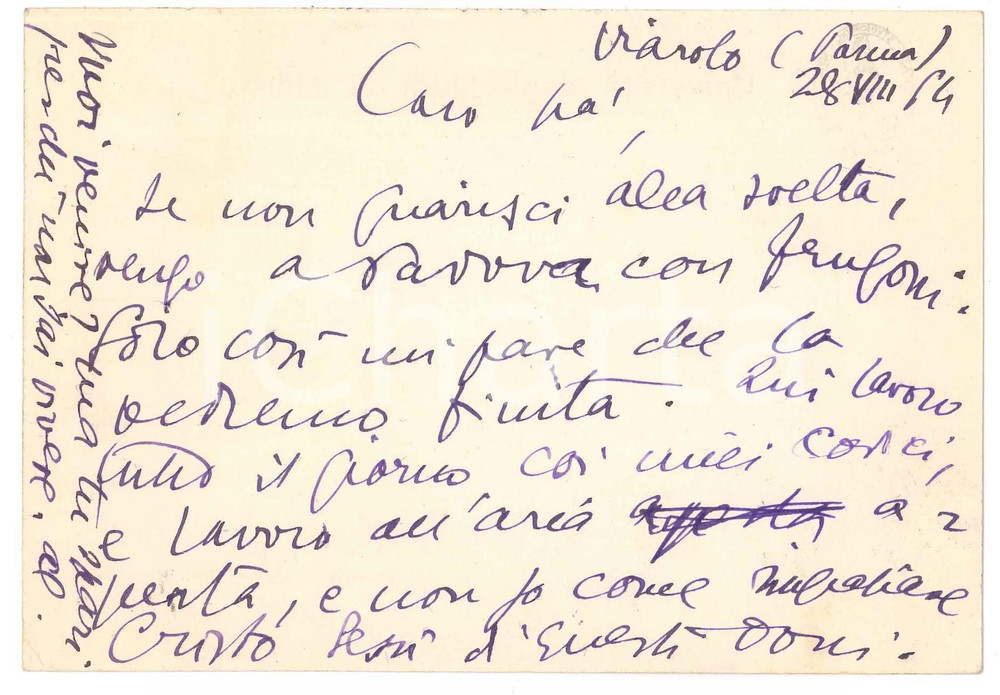 Viarolo (Parma)
28 VIII 64
Caro pa',
Se non guarisci alla svelta,
vengo a Padova con Frugoni.
Solo così mi pare che la
vedremo finita. Qui lavoro
tutto il giorno coi miei codici,
e lavoro all'aria aperta a-
perta, e non so come ringraziare
Cristo Gesù di questi doni.
Vuoi venire? ma tu spari.
prendi, non sai vivere.
iCharta